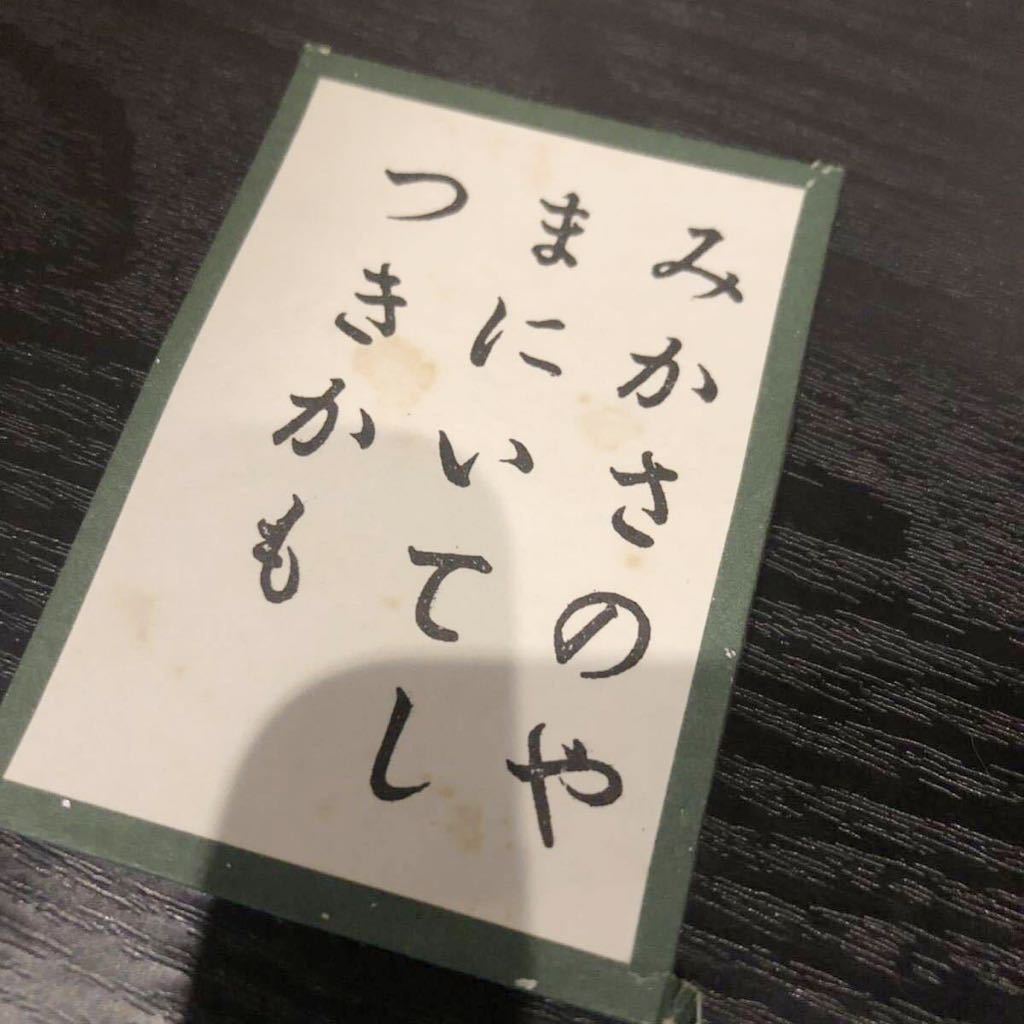 みかさのや
まにいてし
つきかも